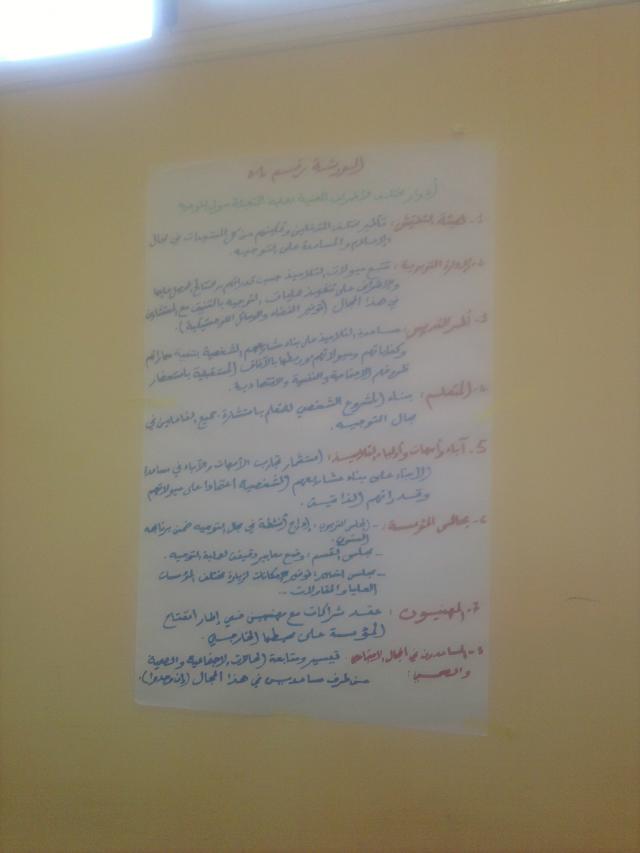 الورشة رقم
أدوار مختلف الأطراف المعنية بعملية التعبئة حول التوجيه
1- هيئة التفتيش: تأطير مختلف المتدخلين وتمكينهم من كل المستجدات في مجال
والإعلام والمساعدة على التوجيه.
2- الإدارة التربوية: تتبع ميولات التلاميذ حسب قدراتهم و نتائج المحصل عليها
والإشراف على تنفيذ عمليات التوجيه بالتنسيق مع المستشارين
في هذا المجال (توفير الفضاء والوسائل اللوجستيكية).
3- أطر التدريس: مساعدة التلاميذ على بناء مشاريعهم الشخصية بتنمية مهاراتهم
وكفاياتهم وميولاتهم وربطها بالآفاق المستقبلية باستحضار
ظروفهم الاجتماعية والنفسية والاقتصادية.
4- المتعلم: بناء المشروع الشخصي للمتعلم باستشارة جميع الفاعلين في
مجال التوجيه.
5- آباء وأمهات وأولياء التلاميذ: استثمار تجارب الأمهات والآباء في مساعدة
الأبناء على بناء مشاريعهم الشخصية اعتمادا على ميولاتهم
وقدراتهم الذاتية.
6- مجالس المؤسسة: - المجلس التربوي: إدراج أنشطة في مجال التوجيه ضمن برنامجه
السنوي.
- مجلس القسم: وضع معايير دقيقة لعملية التوجيه.
- مجلس التدبير: توفير الإمكانات لزيارة مختلف المؤسسات
العليا والمقاولات ...
7- المهنيون: عقد شراكات مع مهنيين في إطار انفتاح
المؤسسة على محيطها الخارجي.
8- المساعدون في المجال الاجتماعي تيسير ومتابعة الحالات الاجتماعية والصحية
والصحي: من طرف مساعدين في هذا المجال (إن وجدوا).